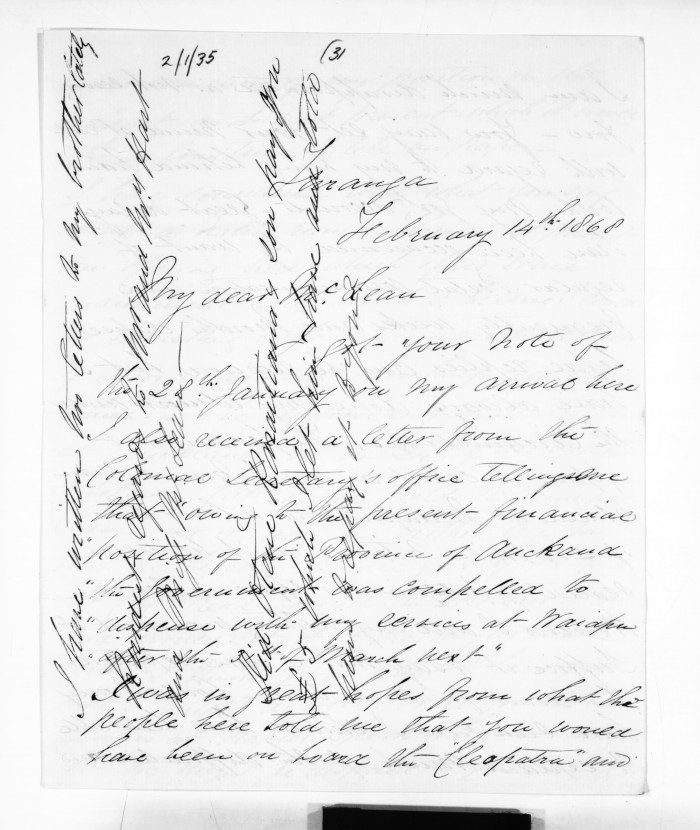 2/1/35
(31
Turanga
February 14th 1868
My dear McLean
I got your note of
the 28th January on my arrival here
I also received a letter from the
Colonial Secretary's office telling me
that "owing to the present financial
"position of the Province of Auckland
"the Government was compelled to
"dispense with my services at Waiapu
"after the 31st of March next"
I was in great hopes from what the
people here told me that you would
have been on board the "Cleopatra" and
I have written two letters to my brother lately
Kindest regards to Mr and Mrs Hart
and
son pay you
£25 which let him have